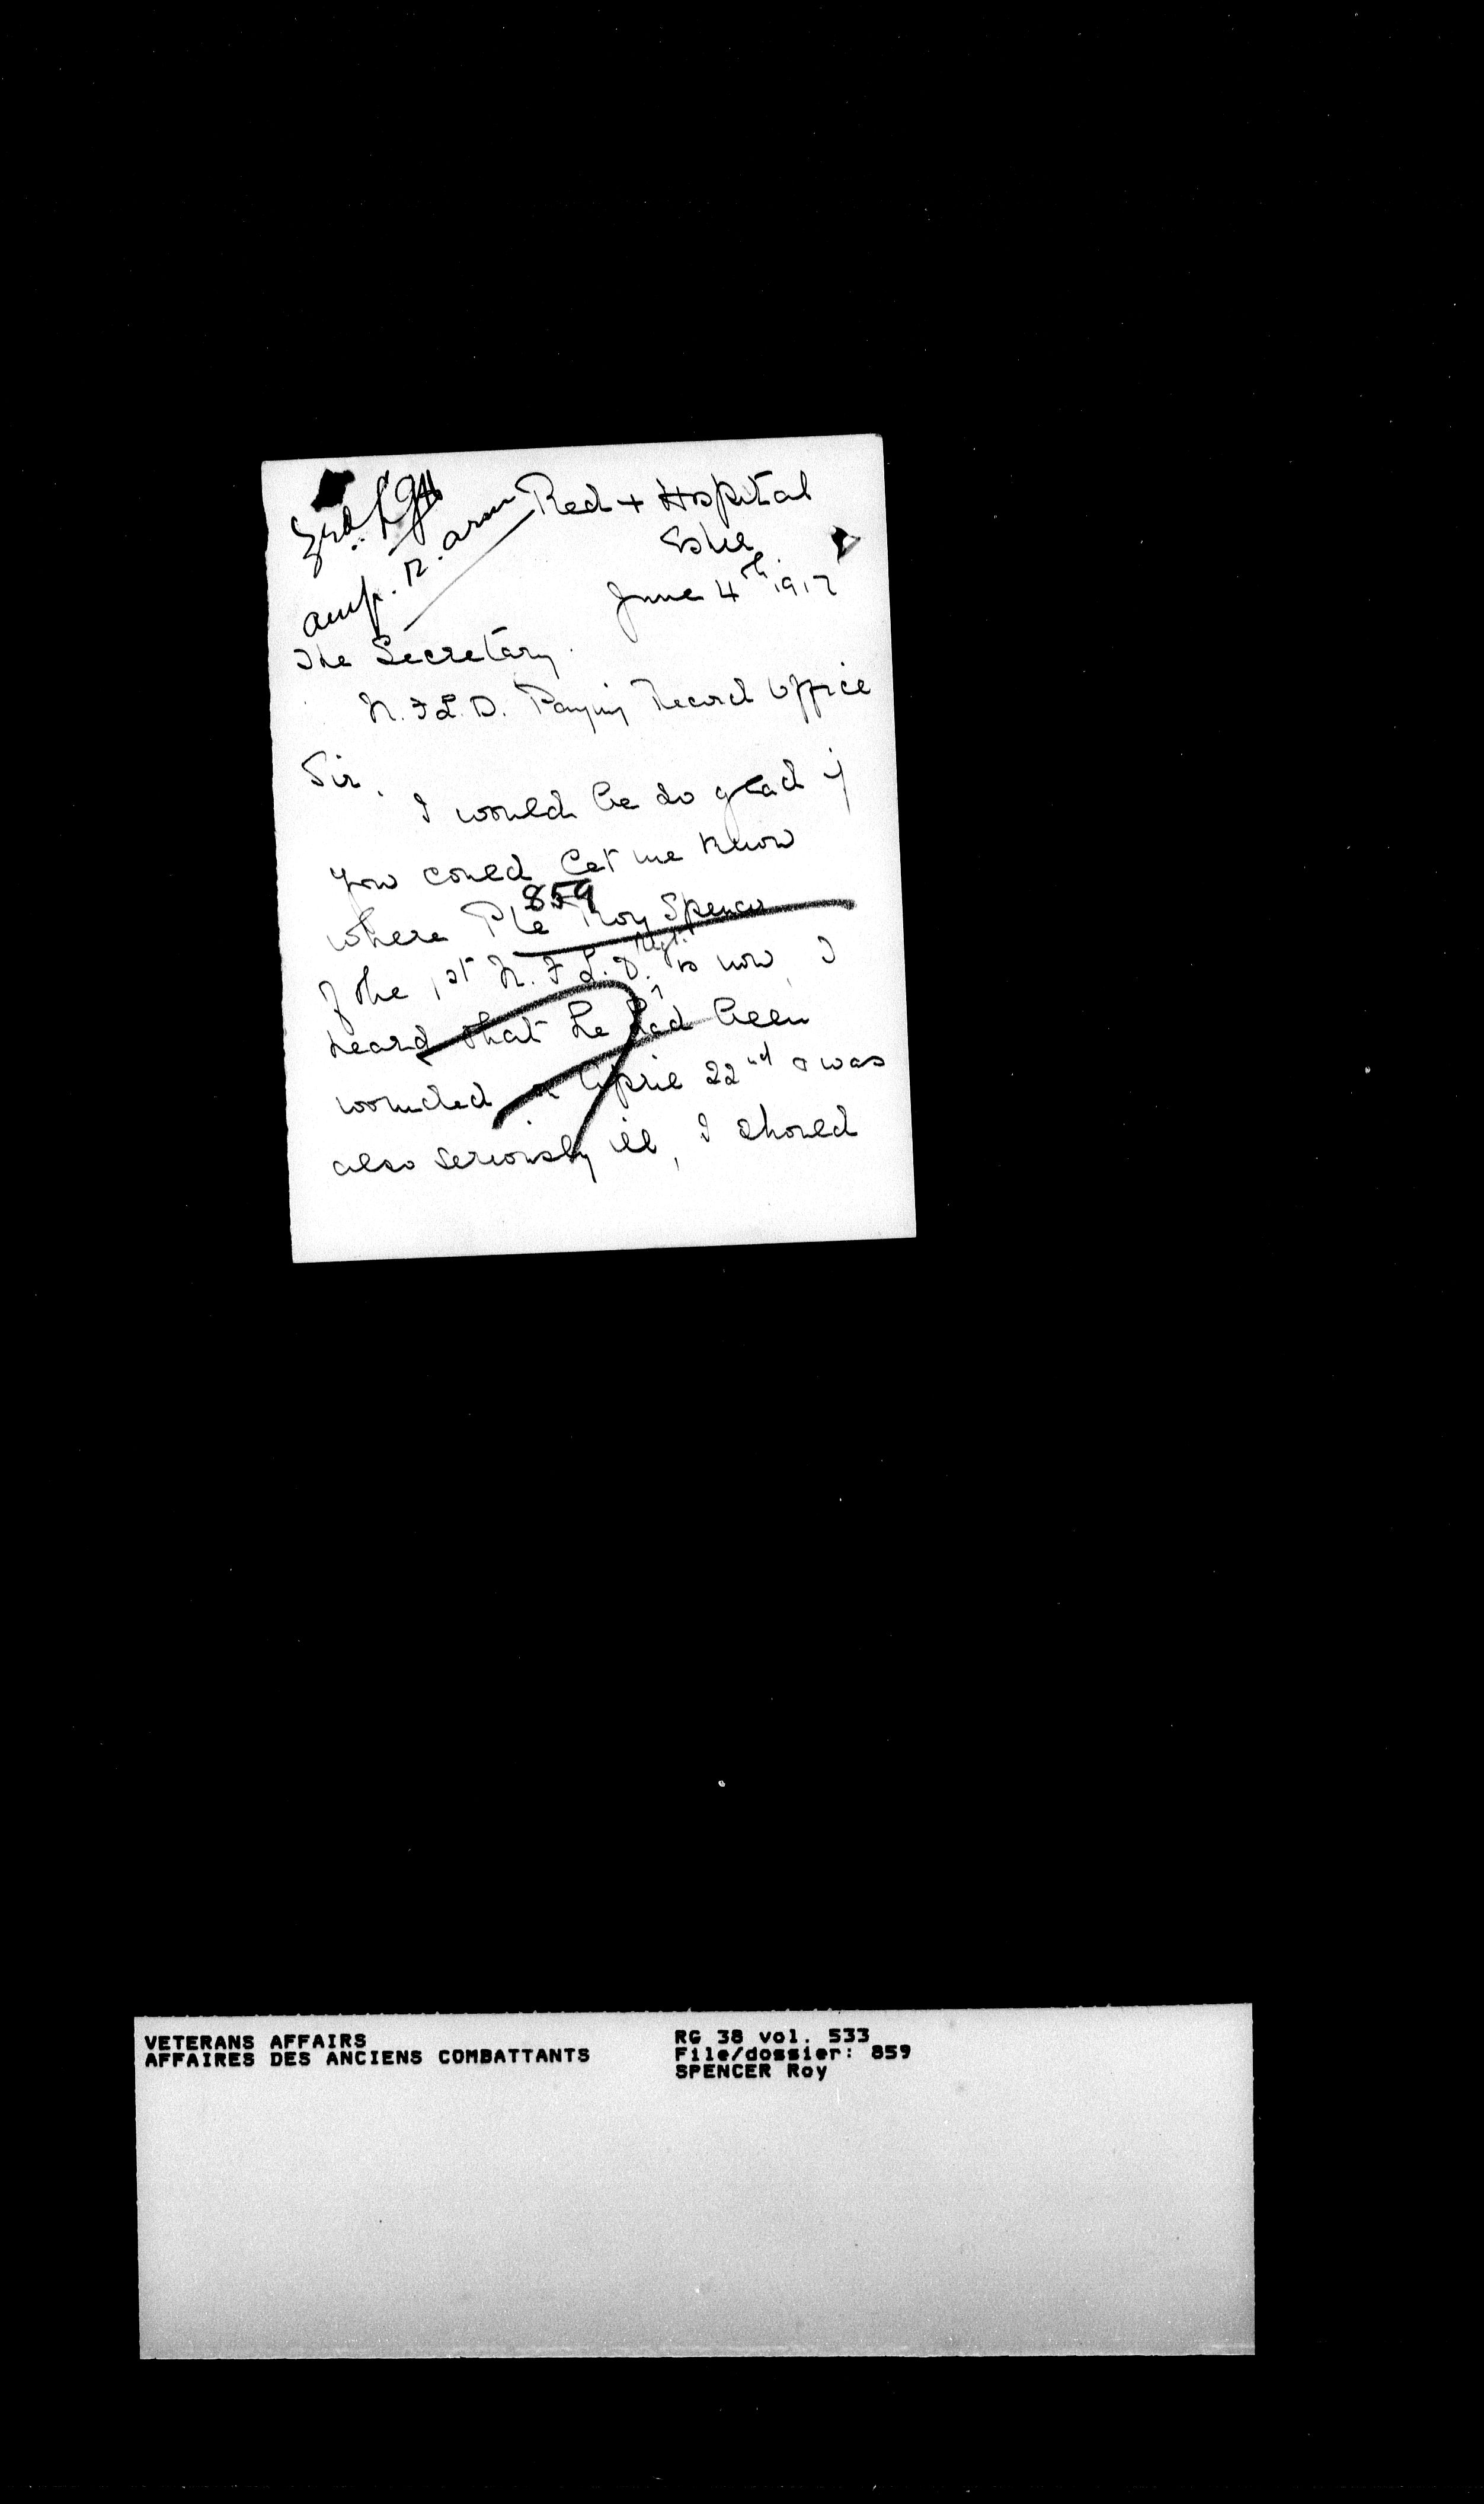 3rd L.G.H.
amp. R. arm
Red + Hospital
Esher
June 4th 1917
The Secretary.
N.F.L.D. Paying Record Office
Sir,
I would be so glad if
you could let me know
859
where Pte Roy Spencer
of the 1st N.F.L.D. Regt. is now, I
heard that he had been
wounded on April 22nd & was
also seriously ill, I should
VETERANS AFFAIRS
AFFAIRES DES ANCIENS COMBATTANTS
RG 38 vol. 533
File/dossier: 859
SPENCER Roy